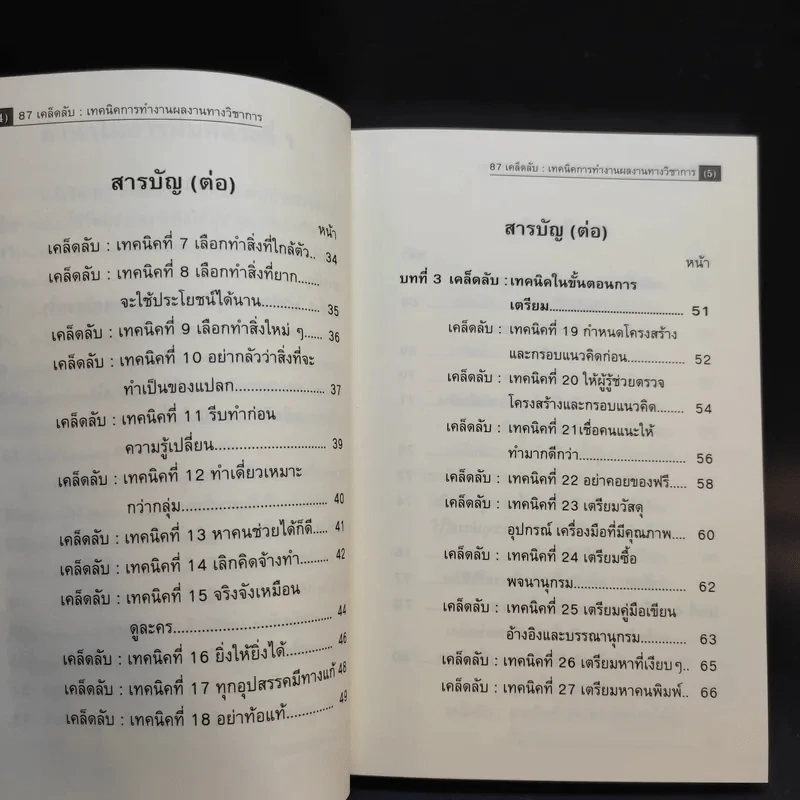 4) 87 เคล็ดลับ : เทคนิคการทำงานผลงานทางวิชาการ
สารบัญ (ต่อ)
หน้า
เคล็ดลับ : เทคนิคที่ 7 เลือกทำสิ่งที่ใกล้ตัว.. 34
เคล็ดลับ : เทคนิคที่ 8 เลือกทำสิ่งที่ยาก.......
จะใช้ประโยชน์ได้นาน............... 35
เคล็ดลับ : เทคนิคที่ 9 เลือกทำสิ่งใหม่ ๆ..... 36
เคล็ดลับ : เทคนิคที่ 10 อย่ากลัวว่าสิ่งที่จะ
ทำเป็นของแปลก..................... 37
เคล็ดลับ : เทคนิคที่ 11 รีบทำก่อน
ความรู้เปลี่ยน......................... 39
เคล็ดลับ : เทคนิคที่ 12 ทำเดี่ยวเหมาะ
กว่ากลุ่ม................................. 40
เคล็ดลับ : เทคนิคที่ 13 หาคนช่วยได้ก็ดี..... 41
เคล็ดลับ : เทคนิคที่ 14 เลิกคิดจ้างทำ........ 42
เคล็ดลับ : เทคนิคที่ 15 จริงจังเหมือน
ดูละคร................................... 44
เคล็ดลับ : เทคนิคที่ 16 ยิ่งให้ยิ่งได้........... 46
เคล็ดลับ : เทคนิคที่ 17 ทุกอุปสรรคมีทางแก้ 48
เคล็ดลับ : เทคนิคที่ 18 อย่าท้อแท้............. 49
87 เคล็ดลับ : เทคนิคการทำงานผลงานทางวิชาการ (5)
สารบัญ (ต่อ)
หน้า
บทที่ 3 เคล็ดลับ : เทคนิคในขั้นตอนการ
เตรียม....................................... 51
เคล็ดลับ : เทคนิคที่ 19 กำหนดโครงสร้าง
และกรอบแนวคิดก่อน............... 52
เคล็ดลับ : เทคนิคที่ 20 ให้ผู้รู้ช่วยตรวจ
โครงสร้างและกรอบแนวคิด........ 54
เคล็ดลับ : เทคนิคที่ 21เชื่อคนแนะให้
ทำมากดีกว่า............................ 56
เคล็ดลับ : เทคนิคที่ 22 อย่าคอยของฟรี..... 58
เคล็ดลับ : เทคนิคที่ 23 เตรียมวัสดุ
อุปกรณ์ เครื่องมือที่มีคุณภาพ.... 60
เคล็ดลับ : เทคนิคที่ 24 เตรียมซื้อ
พจนานุกรม............................. 62
เคล็ดลับ : เทคนิคที่ 25 เตรียมคู่มือเขียน
อ้างอิงและบรรณานุกรม............. 63
เคล็ดลับ : เทคนิคที่ 26 เตรียมหาที่เงียบๆ.. 65
เคล็ดลับ : เทคนิคที่ 27 เตรียมหาคนพิมพ์.. 66